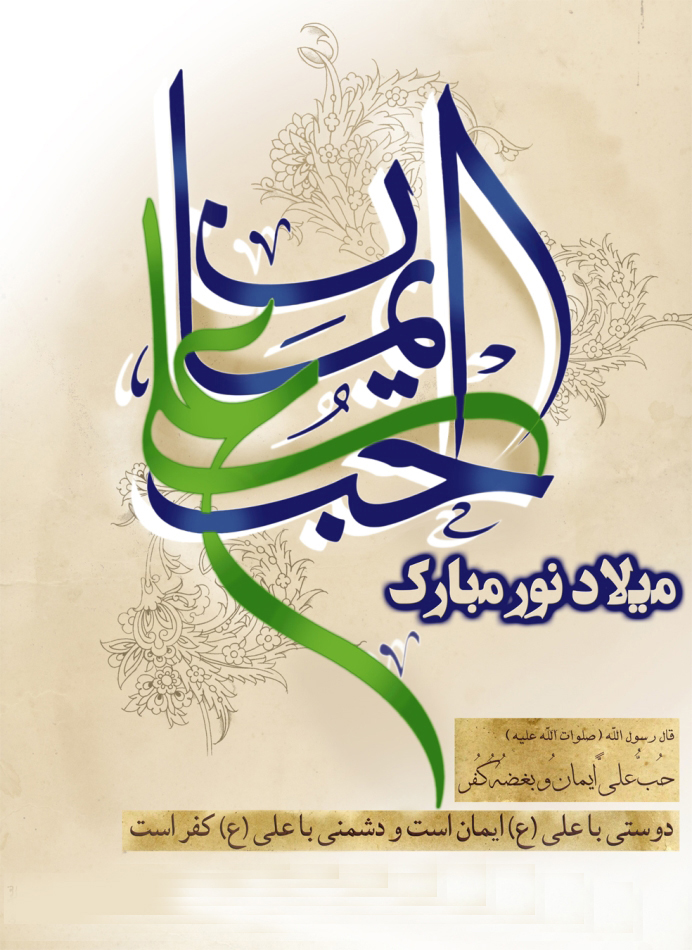 حب علی ایمان
میلاد نور مبارک
قال رسول الله (صلوات الله علیه)
حُبُّ علی ایمانٌ و بغضهُ کُفرٌ
دوستی با علی (ع) ایمان است و دشمنی با علی (ع) کفر است